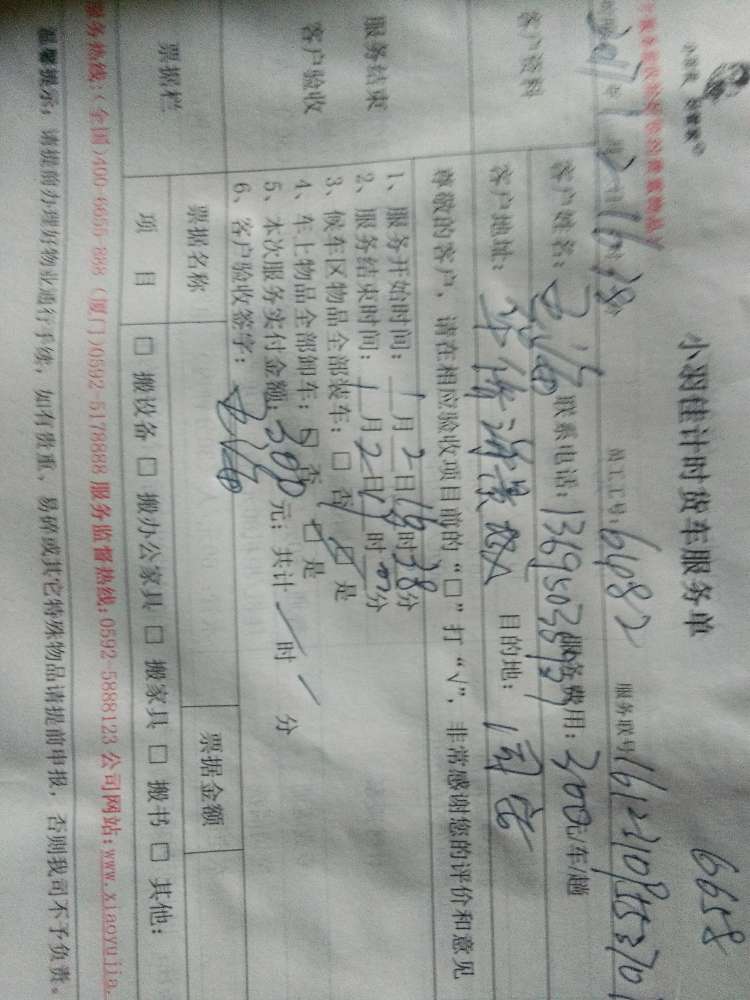 小羽佳 好管家
小羽佳计时货车服务单
6658
2017年1月2日16时38分 员工工号:6682 服务联号
客户资料
客户姓名: 联系电话: 服务费用:300元/车/趟
客户地址: 目的地:同安
尊敬的客户,请在相应验收项目前的“□”打“√”,非常感谢您的评价和意见
服务结束
客户验收
1、服务开始时间:1月2日16时38分
2、服务结束时间:1月2日
3、候车区物品全部装车:□ 否 □ 是
4、车上物品全部卸车:□ 否 □ 是
5、本次服务实付金额:300元;共计 时 分
6、客户验收签字:
票据栏
票据名称 票据金额
项 目 □ 搬设备 □ 搬办公家具 □ 搬家具 □ 搬书 □ 其他:
服务热线:(全国)400-6655-888 (厦门)0592-5178888 服务监督热线:0592-5888123 公司网站:www.xiaoyujia.
温馨提示:请提前办理好物业通行手续,如有贵重、易碎或其它特殊物品请提前申报,否则我司不予负责。